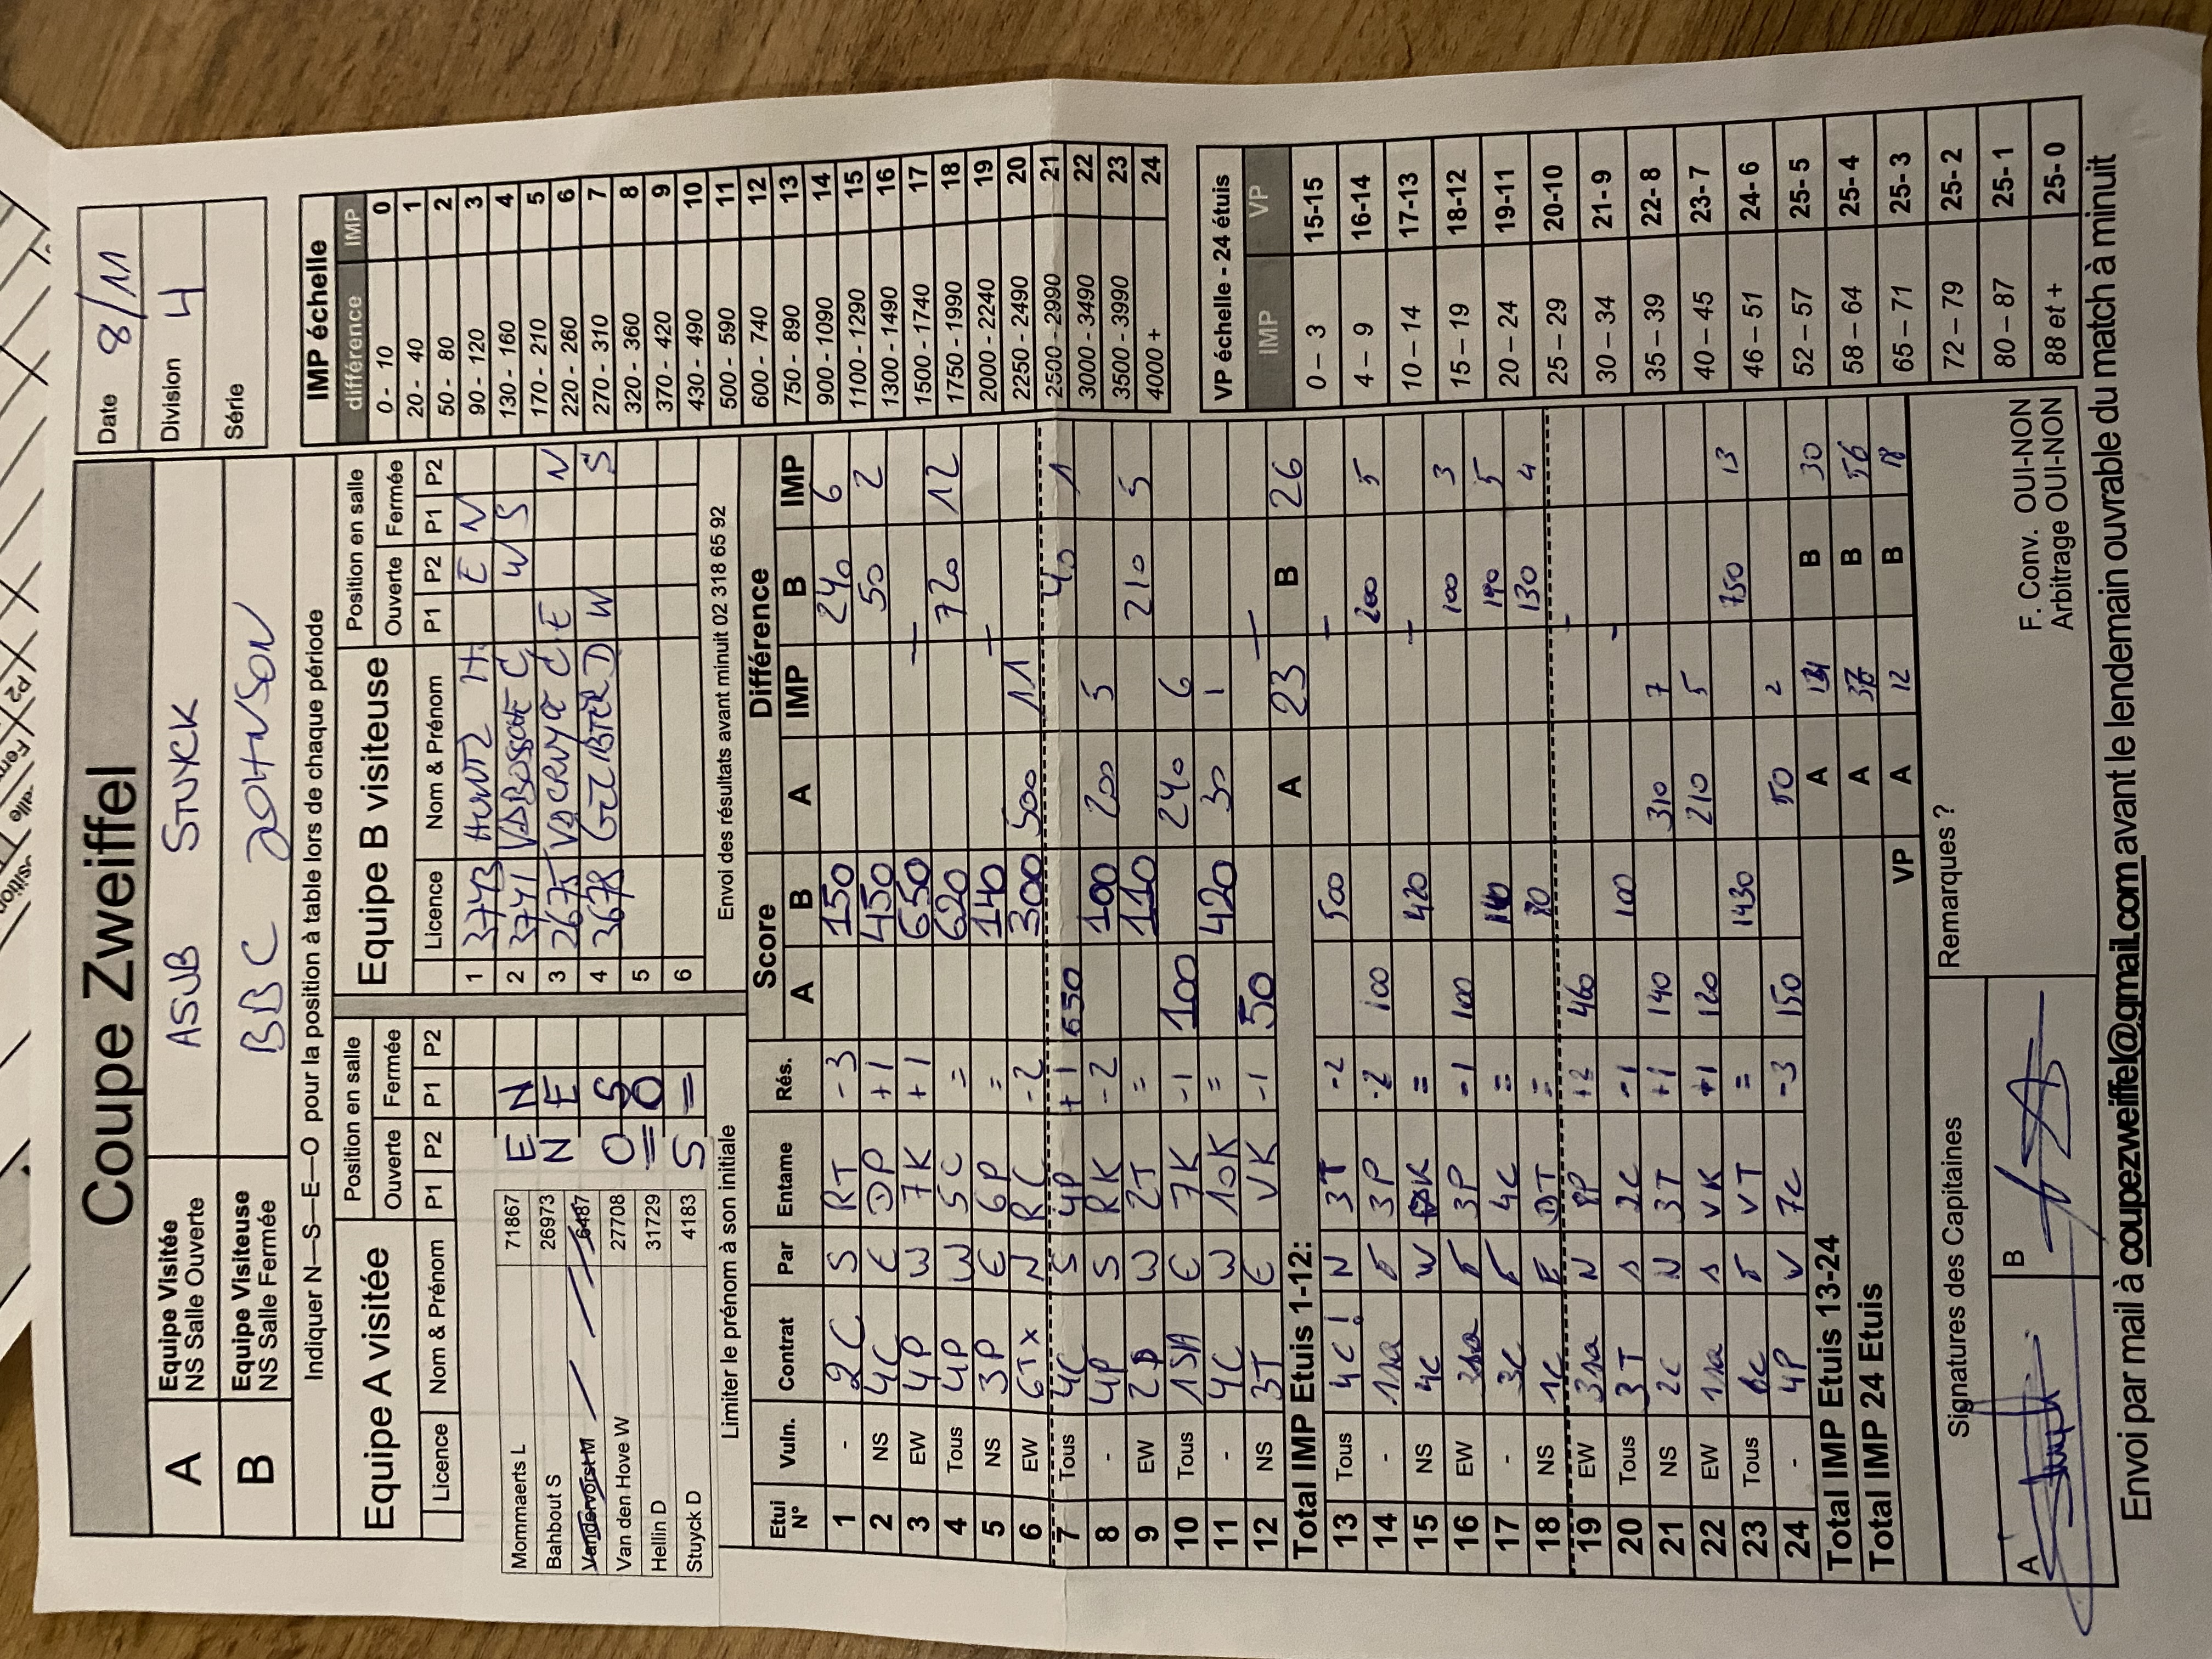 Coupe Zweiffel
Date 8/11
Division 4
Série
A Equipe Visitée NS Salle Ouverte ASUB STUYCK
B Equipe Visiteuse NS Salle Fermée BBC JOHNSON
Indiquer N—S—E—O pour la position à table lors de chaque période
Equipe A visitée
Position en salle
Ouverte Fermée
Licence Nom & Prénom P1 P2 P1 P2
Mommaerts L 71867 E N
Bahbout S 26973 N E
Vandervorst M 6487
Van den Hove W 27708 O S
Hellin D 31729 = O
Stuyck D 4183 S =
Limiter le prénom à son initiale
Equipe B visiteuse
Position en salle
Ouverte Fermée
Licence Nom & Prénom P1 P2 P1 P2
1 3743 HUNTZ H. E N
2 3741 W S
3 2675 E N
4 3678 D W S
5
6
Envoi des résultats avant minuit 02 318 65 92
IMP échelle
différence IMP
0 - 10 0
20 - 40 1
50 - 80 2
90 - 120 3
130 - 160 4
170 - 210 5
220 - 260 6
270 - 310 7
320 - 360 8
370 - 420 9
430 - 490 10
500 - 590 11
600 - 740 12
750 - 890 13
900 - 1090 14
1100 - 1290 15
1300 - 1490 16
1500 - 1740 17
1750 - 1990 18
2000 - 2240 19
2250 - 2490 20
2500 - 2990 21
3000 - 3490 22
3500 - 3990 23
4000 + 24
Score Différence
Etui N° Vuln. Contrat Par Entame Rés. A B A IMP B IMP
1 - 2C S RT -3 150 240 6
2 NS 4C E DP +1 450 50 2
3 EW 4P W 7K +1 650 —
4 Tous 4P W 5C = 620 720 12
5 NS 3P E 6P = 140 —
6 EW 6Tx N RC -2 300 500 11
7 Tous 4C S 4P +1 650 40 1
8 - 4P S RK -2 100 200 5
9 EW 2P W 2T = 110 210 5
10 Tous 1SA E 7K -1 100 240 6
11 - 4C W 10K = 420 30 1
12 NS 3T E VK -1 50 —
Total IMP Etuis 1-12: A 23 B 26
13 Tous 4C! N 3T -2 500 —
14 - 1sa E 3P -2 100 200 5
15 NS 4C W K = 420 —
16 EW 3sa E 3P -1 100 100 3
17 - 3C E 4C = 140 190 5
18 NS 1C E DT = 80 130 4
19 EW 3sa N 8P +2 460 —
20 Tous 3T S 2C -1 100 —
21 NS 2C N 3T +1 140 310 7
22 EW 1sa S VK +1 120 210 5
23 Tous 6C E VT = 1430 750 13
24 - 4P W 7C -3 150 50 2
Total IMP Etuis 13-24 A 14 B 30
Total IMP 24 Etuis A 37 B 56
VP A 12 B 18
VP échelle - 24 étuis
IMP VP
0 – 3 15-15
4 – 9 16-14
10 – 14 17-13
15 – 19 18-12
20 – 24 19-11
25 – 29 20-10
30 – 34 21- 9
35 – 39 22- 8
40 – 45 23- 7
46 – 51 24- 6
52 – 57 25- 5
58 – 64 25- 4
65 – 71 25- 3
72 – 79 25- 2
80 – 87 25- 1
88 et + 25- 0
Signatures des Capitaines
A B
Remarques ?
F. Conv. OUI-NON
Arbitrage OUI-NON
Envoi par mail à coupezweiffel@gmail.com avant le lendemain ouvrable du match à minuit